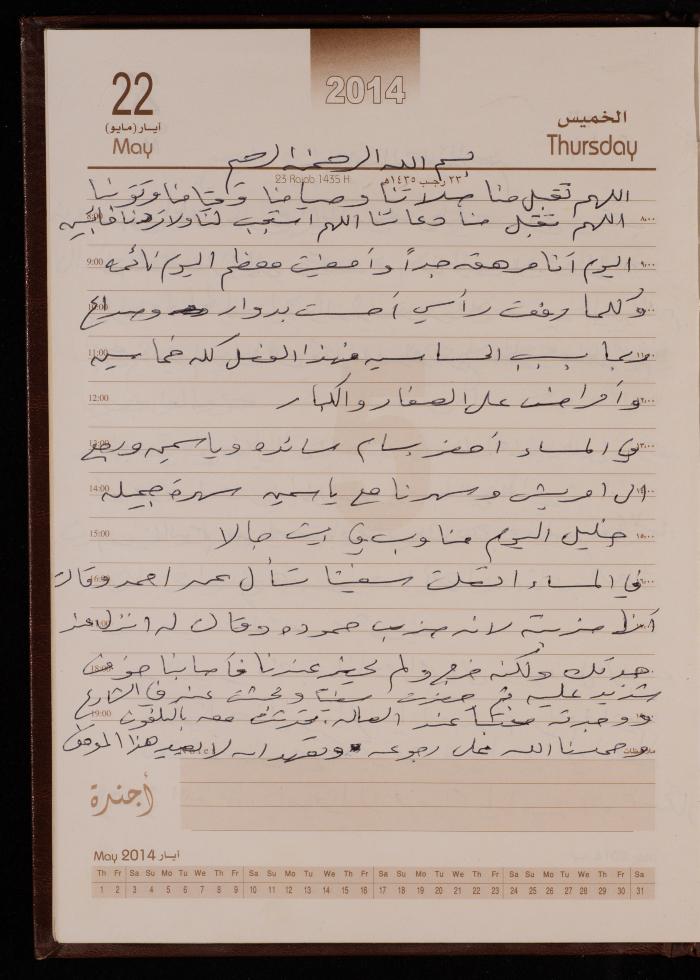 2014
22
أيار (مايو)
May
الخميس
Thursday
بسم الله الرحمن الرحيم
23 Rajab 1435 H
٢٣ رجب ١٤٣٥هـ
اللهم تقبل منا صلاتنا وصيامنا وقيامنا
8:00 اللهم تقبل منا دعائنا اللهم استجب لنا ولا تردنا خائبين ٨:٠٠
9:00 اليوم أنا مرهقه جداً وأمضيت معظم اليوم نائمه ٩:٠٠
وكلما رفعت رأسي أحسست بدوار وصداع
11:00 ربما بسبب الحساسيه فهذا الفصل كله خماسين
12:00 وأمراض على الصغار والكبار
في المساء أحضر بسام سائده وياسمين
14:00 الى امريش وسهرنا مع ياسمين سهرة جميله
15:00 خليل اليوم مناوب في بيت جالا
في المساء اتصلت سفيتا تسأل عن احمد وقالت
أنها ضربته لانه ضرب حموده وقال له انزل عند
18:00 جدتك ولكنه خرج ولم يحضر عندنا فأصابنا خوف
شديد عليه ثم حضرت سفيتا وبحثت عنه في الشارع
19:00 ووجدته عند الصاله تحدثت معه بالتلفون
وحمدنا الله على رجوعه وتعهد انه لا يعيد هذا الموقف
أجندة
May 2014 أيار
Th Fr Sa Su Mo Tu We Th Fr Sa Su Mo Tu We Th Fr Sa Su Mo Tu We Th Fr Sa Su Mo Tu We Th Fr Sa
1 2 3 4 5 6 7 8 9 10 11 12 13 14 15 16 17 18 19 20 21 22 23 24 25 26 27 28 29 30 31